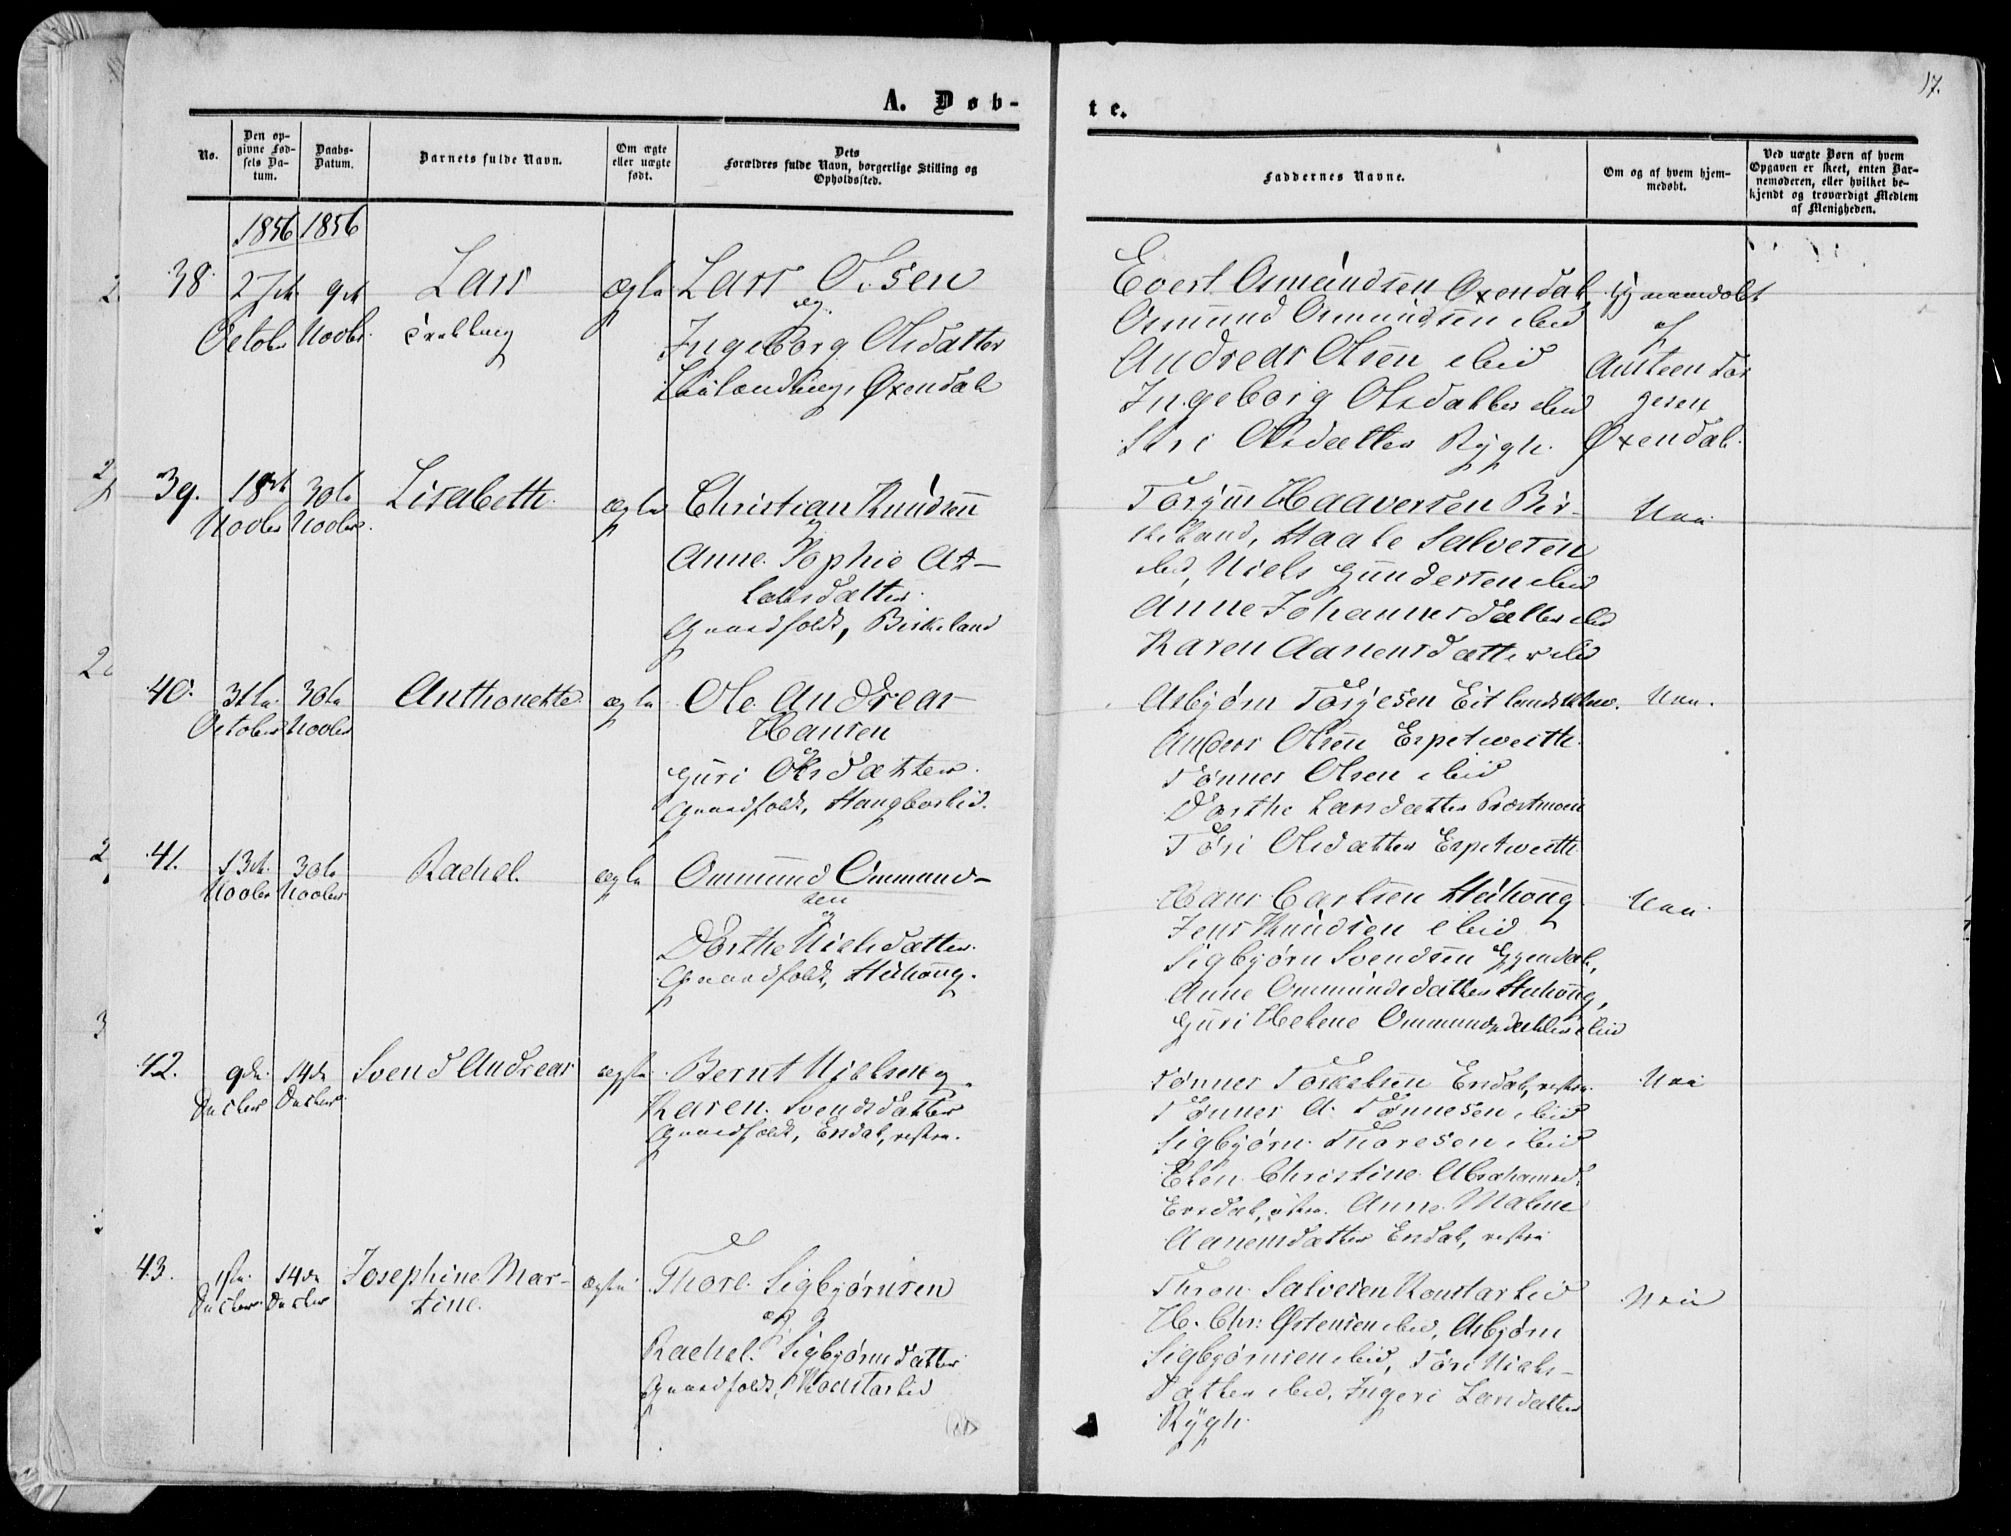 17.
A. Døb-
te.
No.
Den op-
givne Fød-
sels Da-
tum.
Daabs-
Datum.
Barnets fulde Navn.
Om ægte
eller uægte
født.
Dets
Forældres fulde Navn, borgerlige Stilling og
Opholdssted.
Faddernes Navne.
Om og af hvem hjem-
medøbt.
Ved uægte Børn af hvem
Opgaven er skeet, enten Bar-
nemoderen, eller hvilket be-
kjendt og troværdigt Medlem
af Menigheden.
1856 1856
38
27de
October
9de
Novbr.
Lars
ægte
Lars Olsen
og
Ingeborg Olsdatter
Øxendal
Evert Osmundsen Oxendal
Osmund Osmundsen ibid
Andreas Olsen ibid
Ingeborg Olsdatter ibid
Siri Olsdatter Rygh.
hjemmedøbt
af
Austeen Tor
gersen
Øxendal.
39.
18de
Novbr
30te
Novbr.
Lisabeth
ægte
Christian Knudsen
og
Anne Sophie As-
laksdatter
Gaardfolk, Birkeland
Torjus Haaversen Bir-
keland, Haake Salvesen
ibid, Niels Gundersen ibid
Anne Johannesdatter ibid
Karen Aanensdatter ibid
Nei
40.
31te
October
30te
Novbr
Anthonette
ægte
Ole Andreas
Hansen
og
Guri Olsdatter
Gaardfolk, Haugbaslid.
Asbjørn Torjesen
Anders Olsen Erpetveith
Tønnes Olsen ibid
Dorthe Larsdatter Præstmoen
Tøri Olsdatter Erpetveith
Nei.
41.
13de
Novbr
30te
Novbr
Rachel.
ægte
Ommund Ommund-
sen
og
Dorthe Nielsdatter
Gaardfolk,
Hans Carlsen
Jens Knudsen ibid
Sigbjørn Svendsen
Anne Ommundsdatter
Guri Helene Ommundsdatter ibid
Nei
42.
9de
Decber
14de
Decber
Svend Andreas
ægte
Bernt Nielsen og
Karen Svendsdatter
Gaardfolk, Ersdal, vestre.
Tønnes Torkelsen Ersdal, vestre.
Tønnes A. Tønnesen ibid
Sigbjørn Thoresen ibid
Elen Christine Abrahamsd.
Ersdal, østre. Anne Malene
Aanensdatter Ersdal, vestre
Nei
43.
1ste
Decber
14de
Decber
Josephine Mar-
tine.
ægte
Thore Sigbjørnsen
og
Rachel Sigbjørnsdatter
Gaardfolk,
Thron Salvesen
H. Chr: Østensen ibid, Asbjørn
Sigbjørnsen ibid, Tøri Niels-
datter ibid, Ingeri Larsdatter
Rygh.
Nei